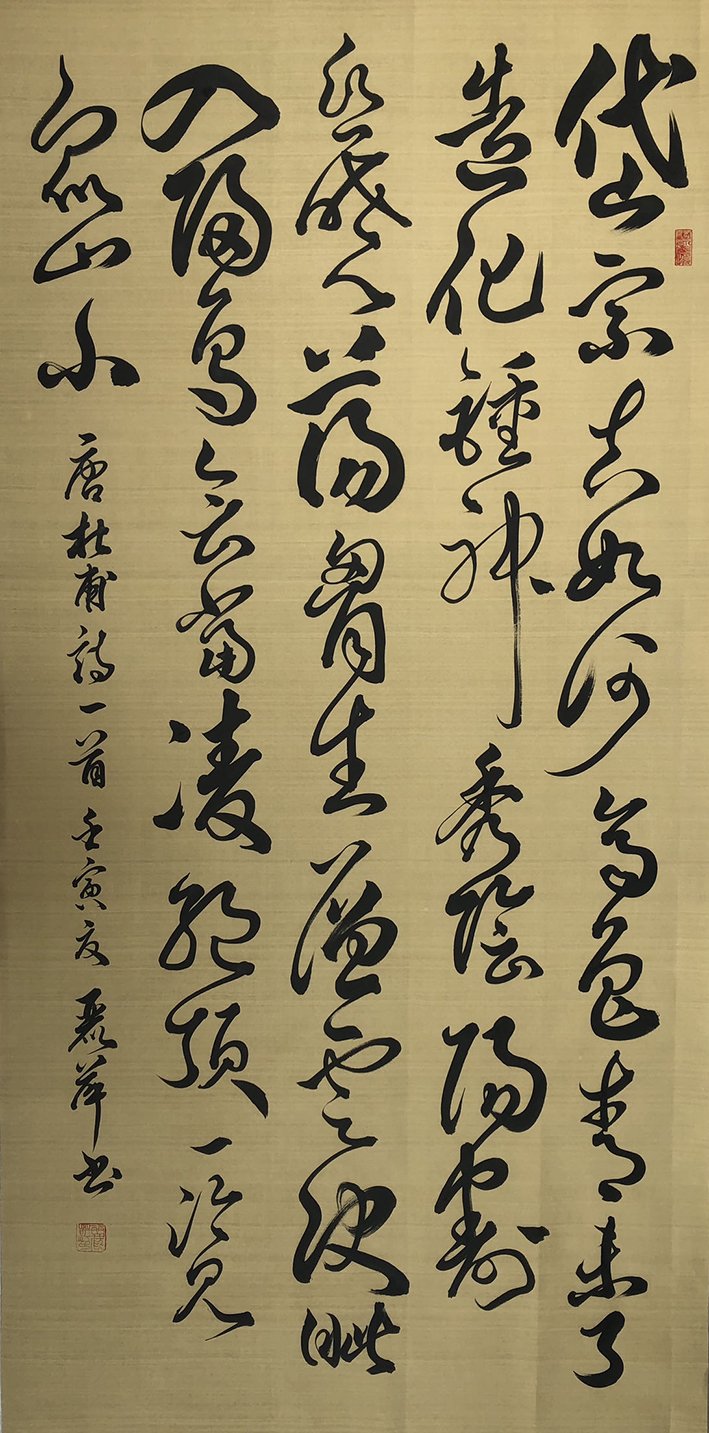 岱宗夫如何齊魯青未了
造化鍾神秀陰陽割
昏曉蕩胷生層雲決眦
入歸鳥會當凌絕頂一覽
眾山小 唐杜甫詩一首壬寅夏麗萍书